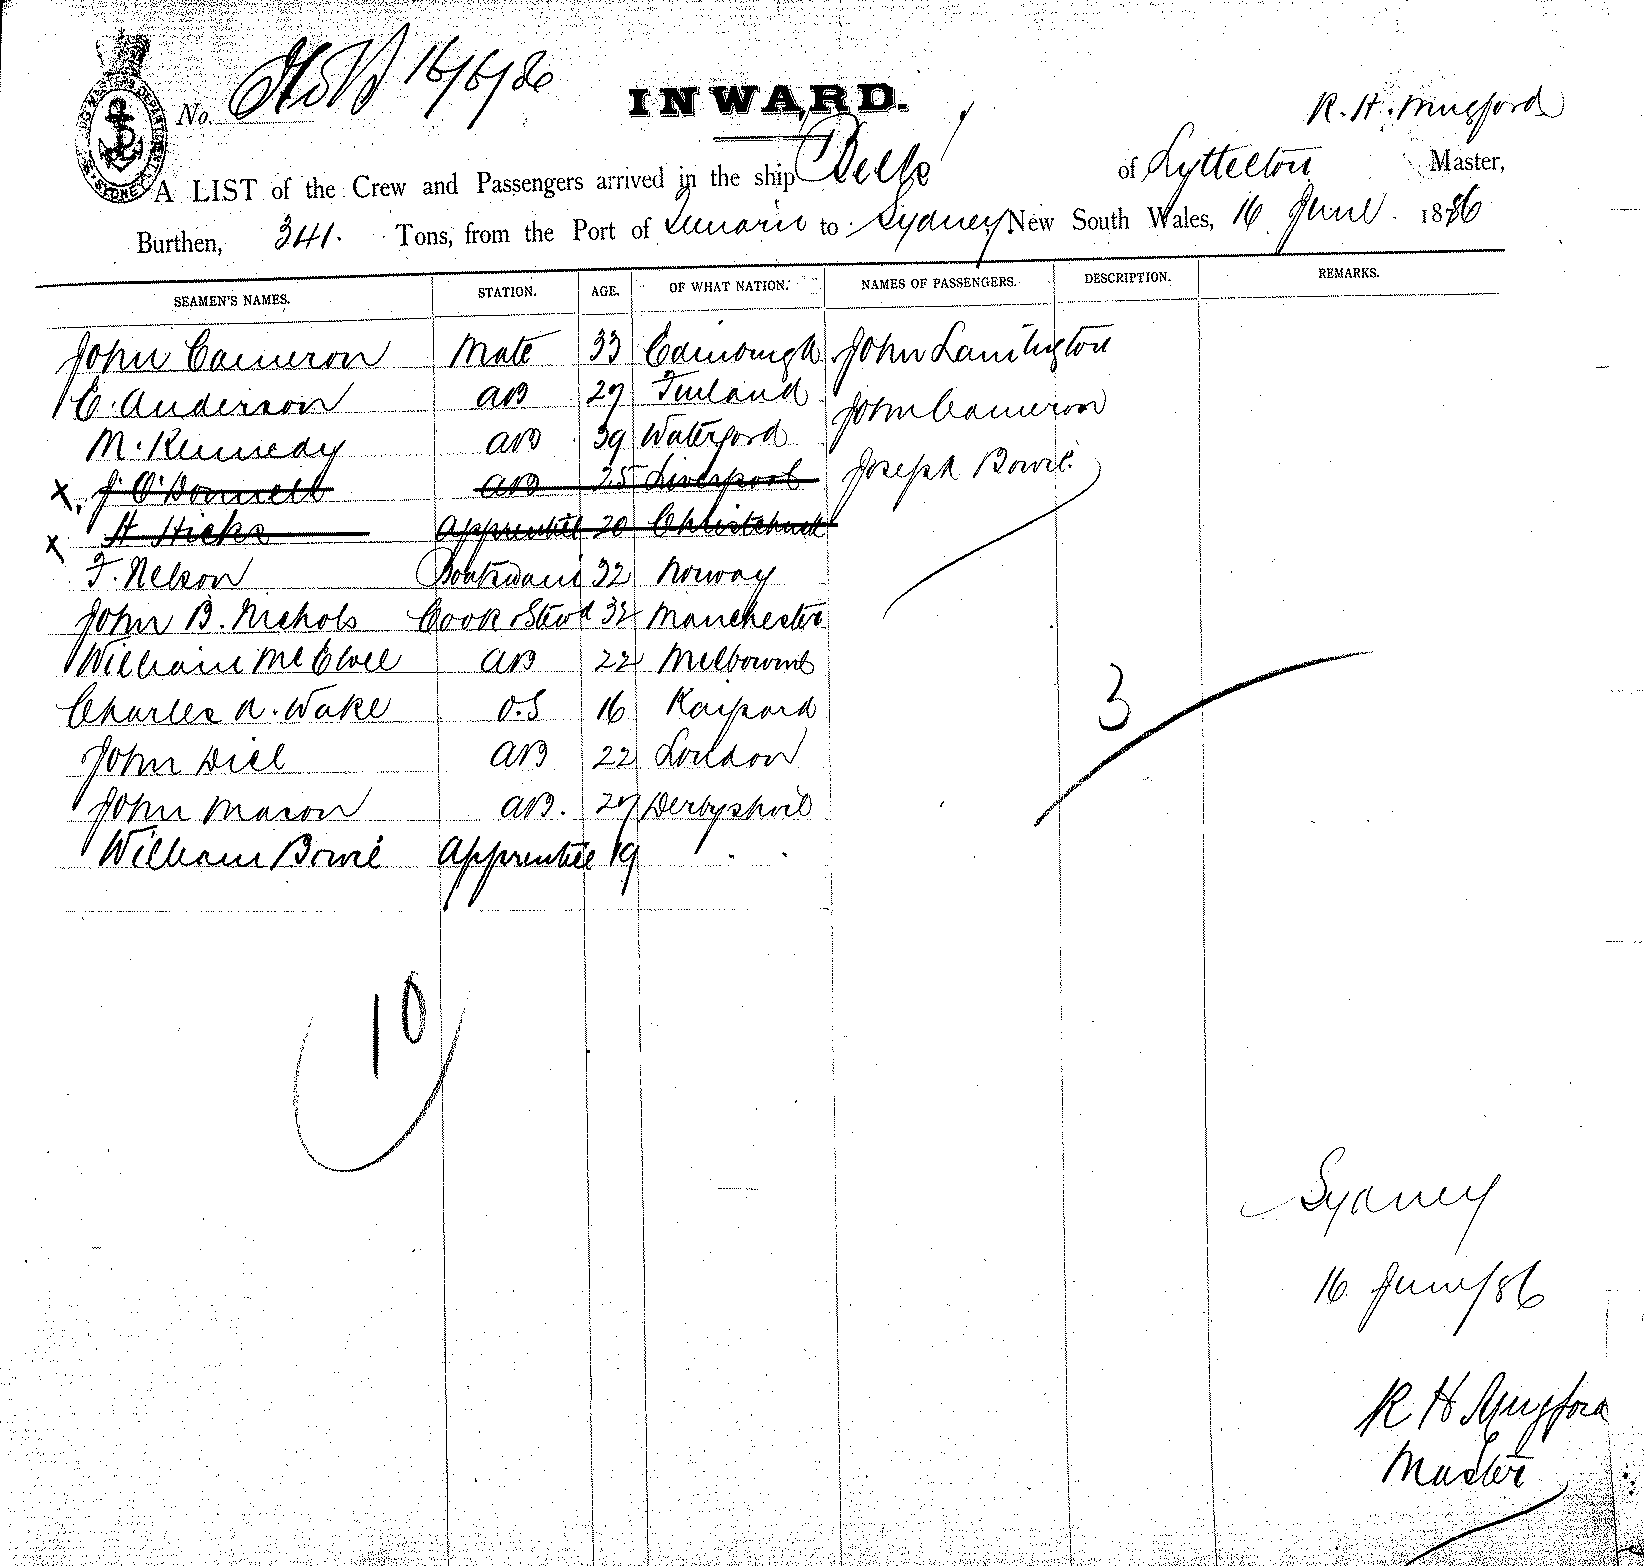 No. 16/6/86
INWARD.
R. H. Mugford
A LIST of the Crew and Passengers arrived in the ship of Lyttelton Master,
Burthen, 341. Tons, from the Port of to Sydney New South Wales, 16 June 1886
SEAMEN'S NAMES. STATION. AGE. OF WHAT NATION. NAMES OF PASSENGERS. DESCRIPTION. REMARKS.
John Cameron Mate 33 Edinburgh John Lamington
C. Anderson AB 27 Finland John Cameron
M. Kennedy AB 39 Waterford
x J O'Donnell AB 25 Liverpool Joseph Bowie
x H Hicks Apprentice 20 Christchurch
F. Nelson Boatswain 32 Norway
John B. Nichols Cook & Stewd 32 Manchester
William AB 22 Melbourne
Charles A. Wake O.S 16
3
John Diel AB 22 London
John Mason AB. 27 Derbyshire
William Bowie Apprentice 19 " "
10
Sydney
16 June/86
R H Mugford
Master